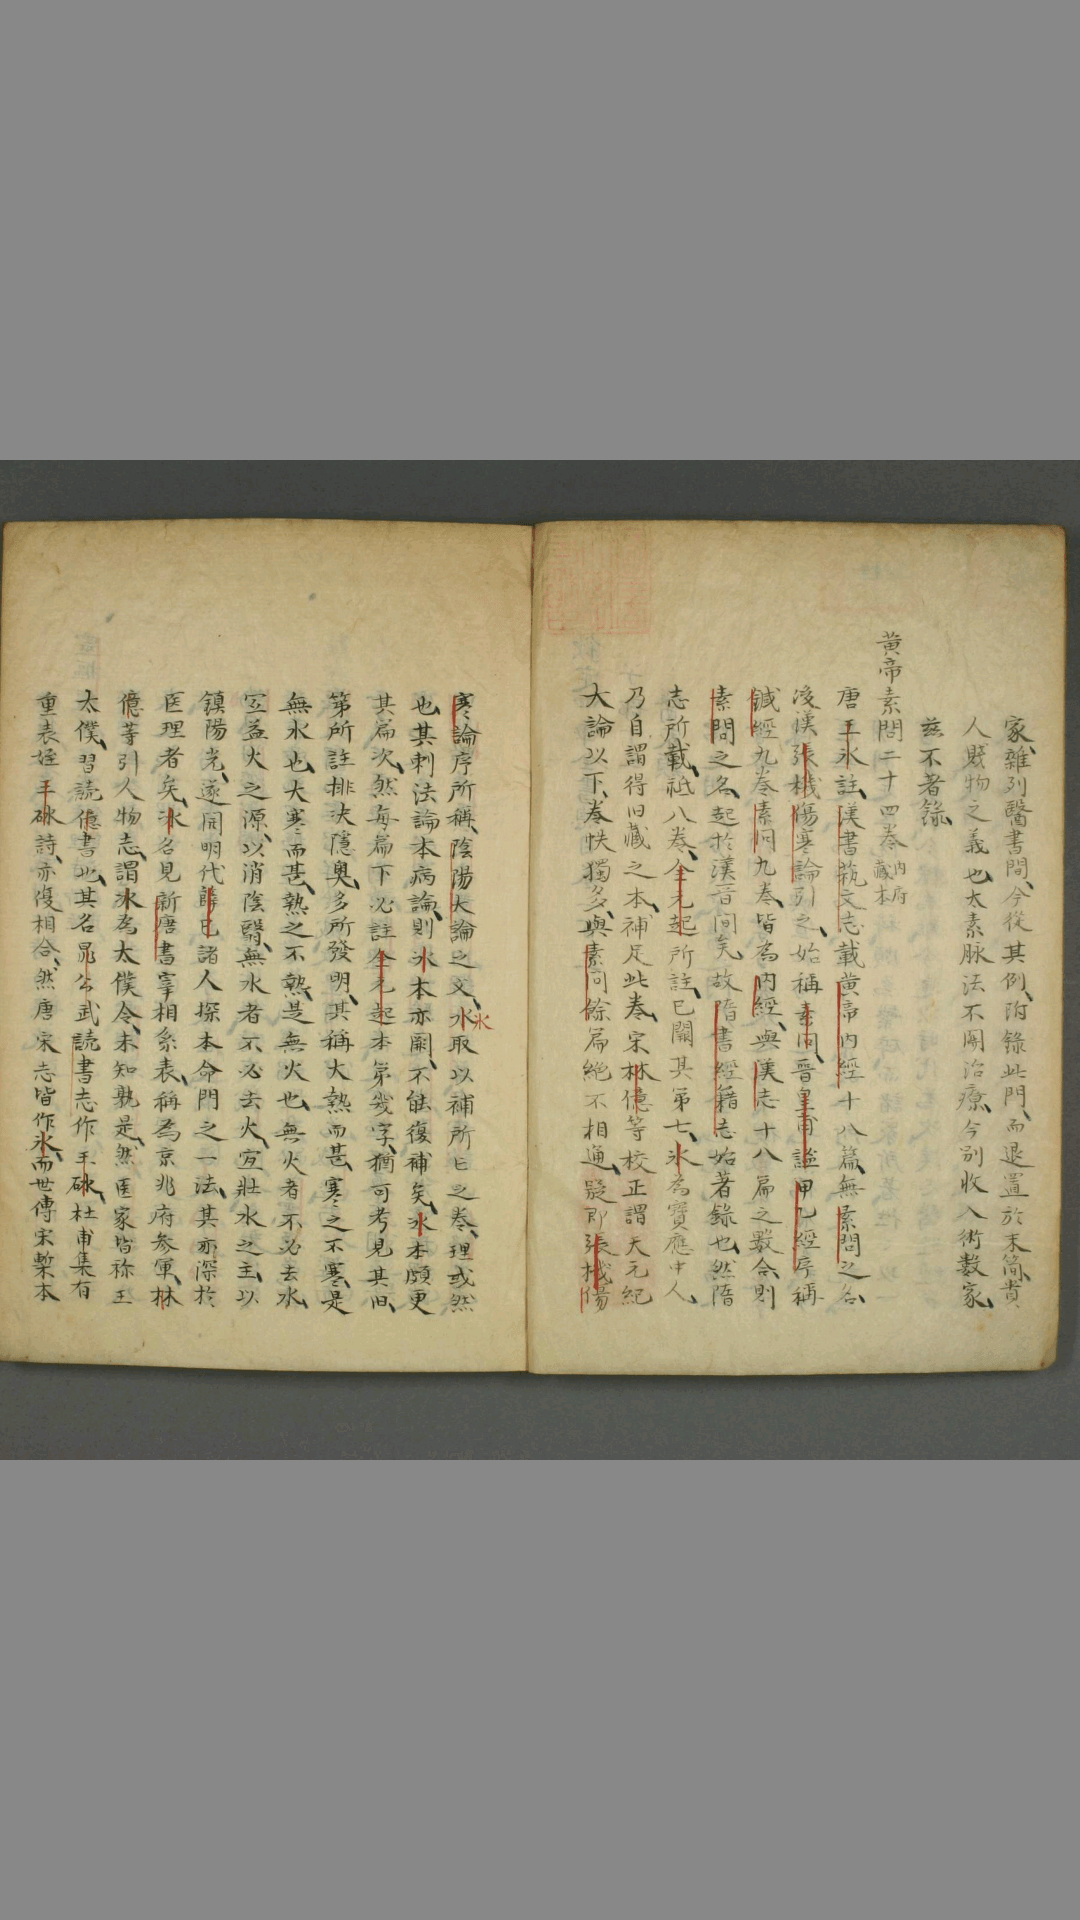 家、雜列醫書間、今從其例、附錄此門、而退置於末簡、貴
人賤物之義也、太素脉法不関治療、今別收入術數家、
茲不著錄、
黄帝素問二十四巻内府藏本
唐王氷註、漢書藝文志載黄帝内經十八篇、無素問之名、
後漢張機傷寒論引之、始稱素問、晉皇甫謐甲乙經序稱
鍼經九巻素问九巻、皆為内經、與漢志十八篇之數合、則
素問之名、起於漢晉間矣、故隋書經籍志始著錄也、然隋
志所載、祗八巻、全元起所註、已闕其第七、氷為寶應中人、
乃自謂得旧藏之本、補足此巻、宋林億等校正謂天元紀
大論以下、巻帙獨多、與素问餘篇絶不相通、疑即張機傷
寒論序所稱、陰陽大論之文、水取以補所亡之巻、理或然
氷
也、其刺法論本病論、則氷本亦闕、不能復補矣、氷本頗更
其篇次、然每篇下必註全元起本第幾字、猶可考見其旧
第、所註排决隱奧、多所發明、其稱大熱而甚、寒之不寒、是
無水也、大寒而甚、熱之不熱、是無火也、無火者不必去水、
宐益火之源、以消陰翳、無水者不必去火、宐壯水之主、以
鎮陽光、遂開明代薛已諸人探本命門之一法、其亦深於
医理者矣、氷名見新唐書宰相系表、稱為京兆府参軍、林
億等引人物志、謂氷為太僕令、未知孰是、然医家皆称王
太僕、習読億書也、其名晁公武読書志作王砅、杜甫集有
重表姪王砅詩、亦復相合、然唐宋志皆作氷、而世傳宋槧本